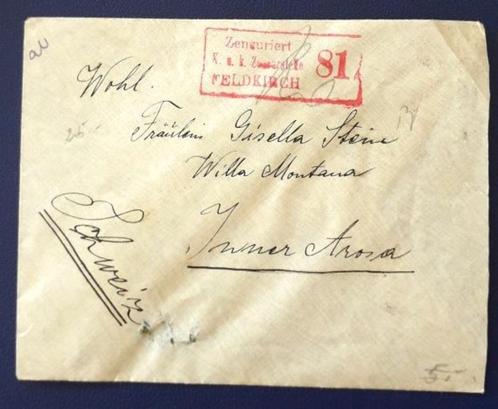 Zensuriert
K. u. k. Zensurstelle
FELDKIRCH
81
Wohl.
Fräulein Gisella Stein
Willa Montana
Inner Arosa
Schweiz
25.-
5.-